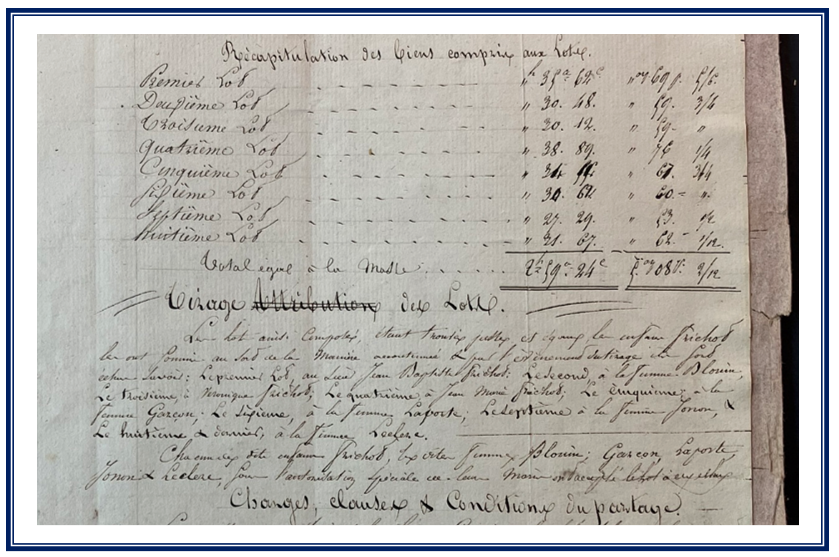 Récapitulation des biens compris aux Lots.
Premier Lot " h 35 a 62 c " or 69 p. 5/6.
Deuxième Lot " 30. 48. " 59. 3/4
Troisième Lot " 30. 12. " 59. "
Quatrième Lot " 38. 89. " 76 1/4
Cinquième Lot " 67. 3/4
Sixième Lot " 30. 62 " 60. "
Septième Lot " 27. 29. " 53. 1/2
Huitième Lot " 31. 67. " 62. 1/12.
Total égal à la Masse 2 h 59 a 24 c 5 or 08 p. 2/12
Tirage Attribution des Lots.
Les lots ainsi composés, étant trouvés justes et égaux les enfans Frichot
les ont tirés au sort de la Manière accoutumée & par l'évènement du tirage est
échu savoir: Le premier Lot, au sieur Jean Baptiste Frichot; Le second à la femme Blouin,
Le troisième, à Véronique Frichot; Le quatrième, à Jean Marie Frichot; Le Cinquième, à la
femme Garçon; Le sixième, à la femme Laporte; Le septième à la femme Jonon, &
Le huitième & dernier, à la femme Leclerc.
Chacun des dits enfans Frichot, les dites femmes Blouin, Garçon, Laporte,
Jonon & Leclerc, sous l'autorisation spéciale de leur Mari ont accepté le lot à eux échu
Charges, clauses & Conditions du partage.